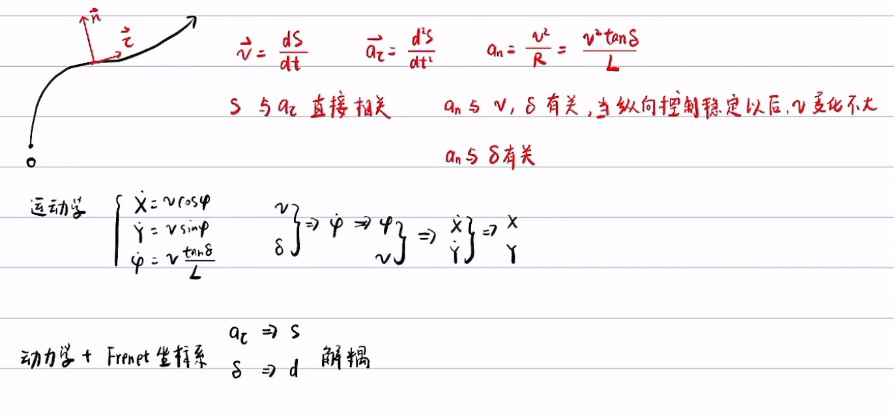 n⃗
τ⃗
v⃗ = dS/dt  a⃗τ = d²S/dt²  an = v²/R = v²tanδ/L
S 与 aτ 直接相关  an 与 v, δ 有关, 当纵向控制稳定以后, v 变化不大
an 与 δ 有关
O
运动学 { Ẋ = vcosφ
Ẏ = vsinφ
φ̇ = v tanδ/L
v
δ } ⇒ φ̇ ⇒ φ
v } ⇒ Ẋ
Ẏ } ⇒ X
Y
动力学 + Frenet 坐标系  aτ ⇒ S
δ ⇒ d  解耦